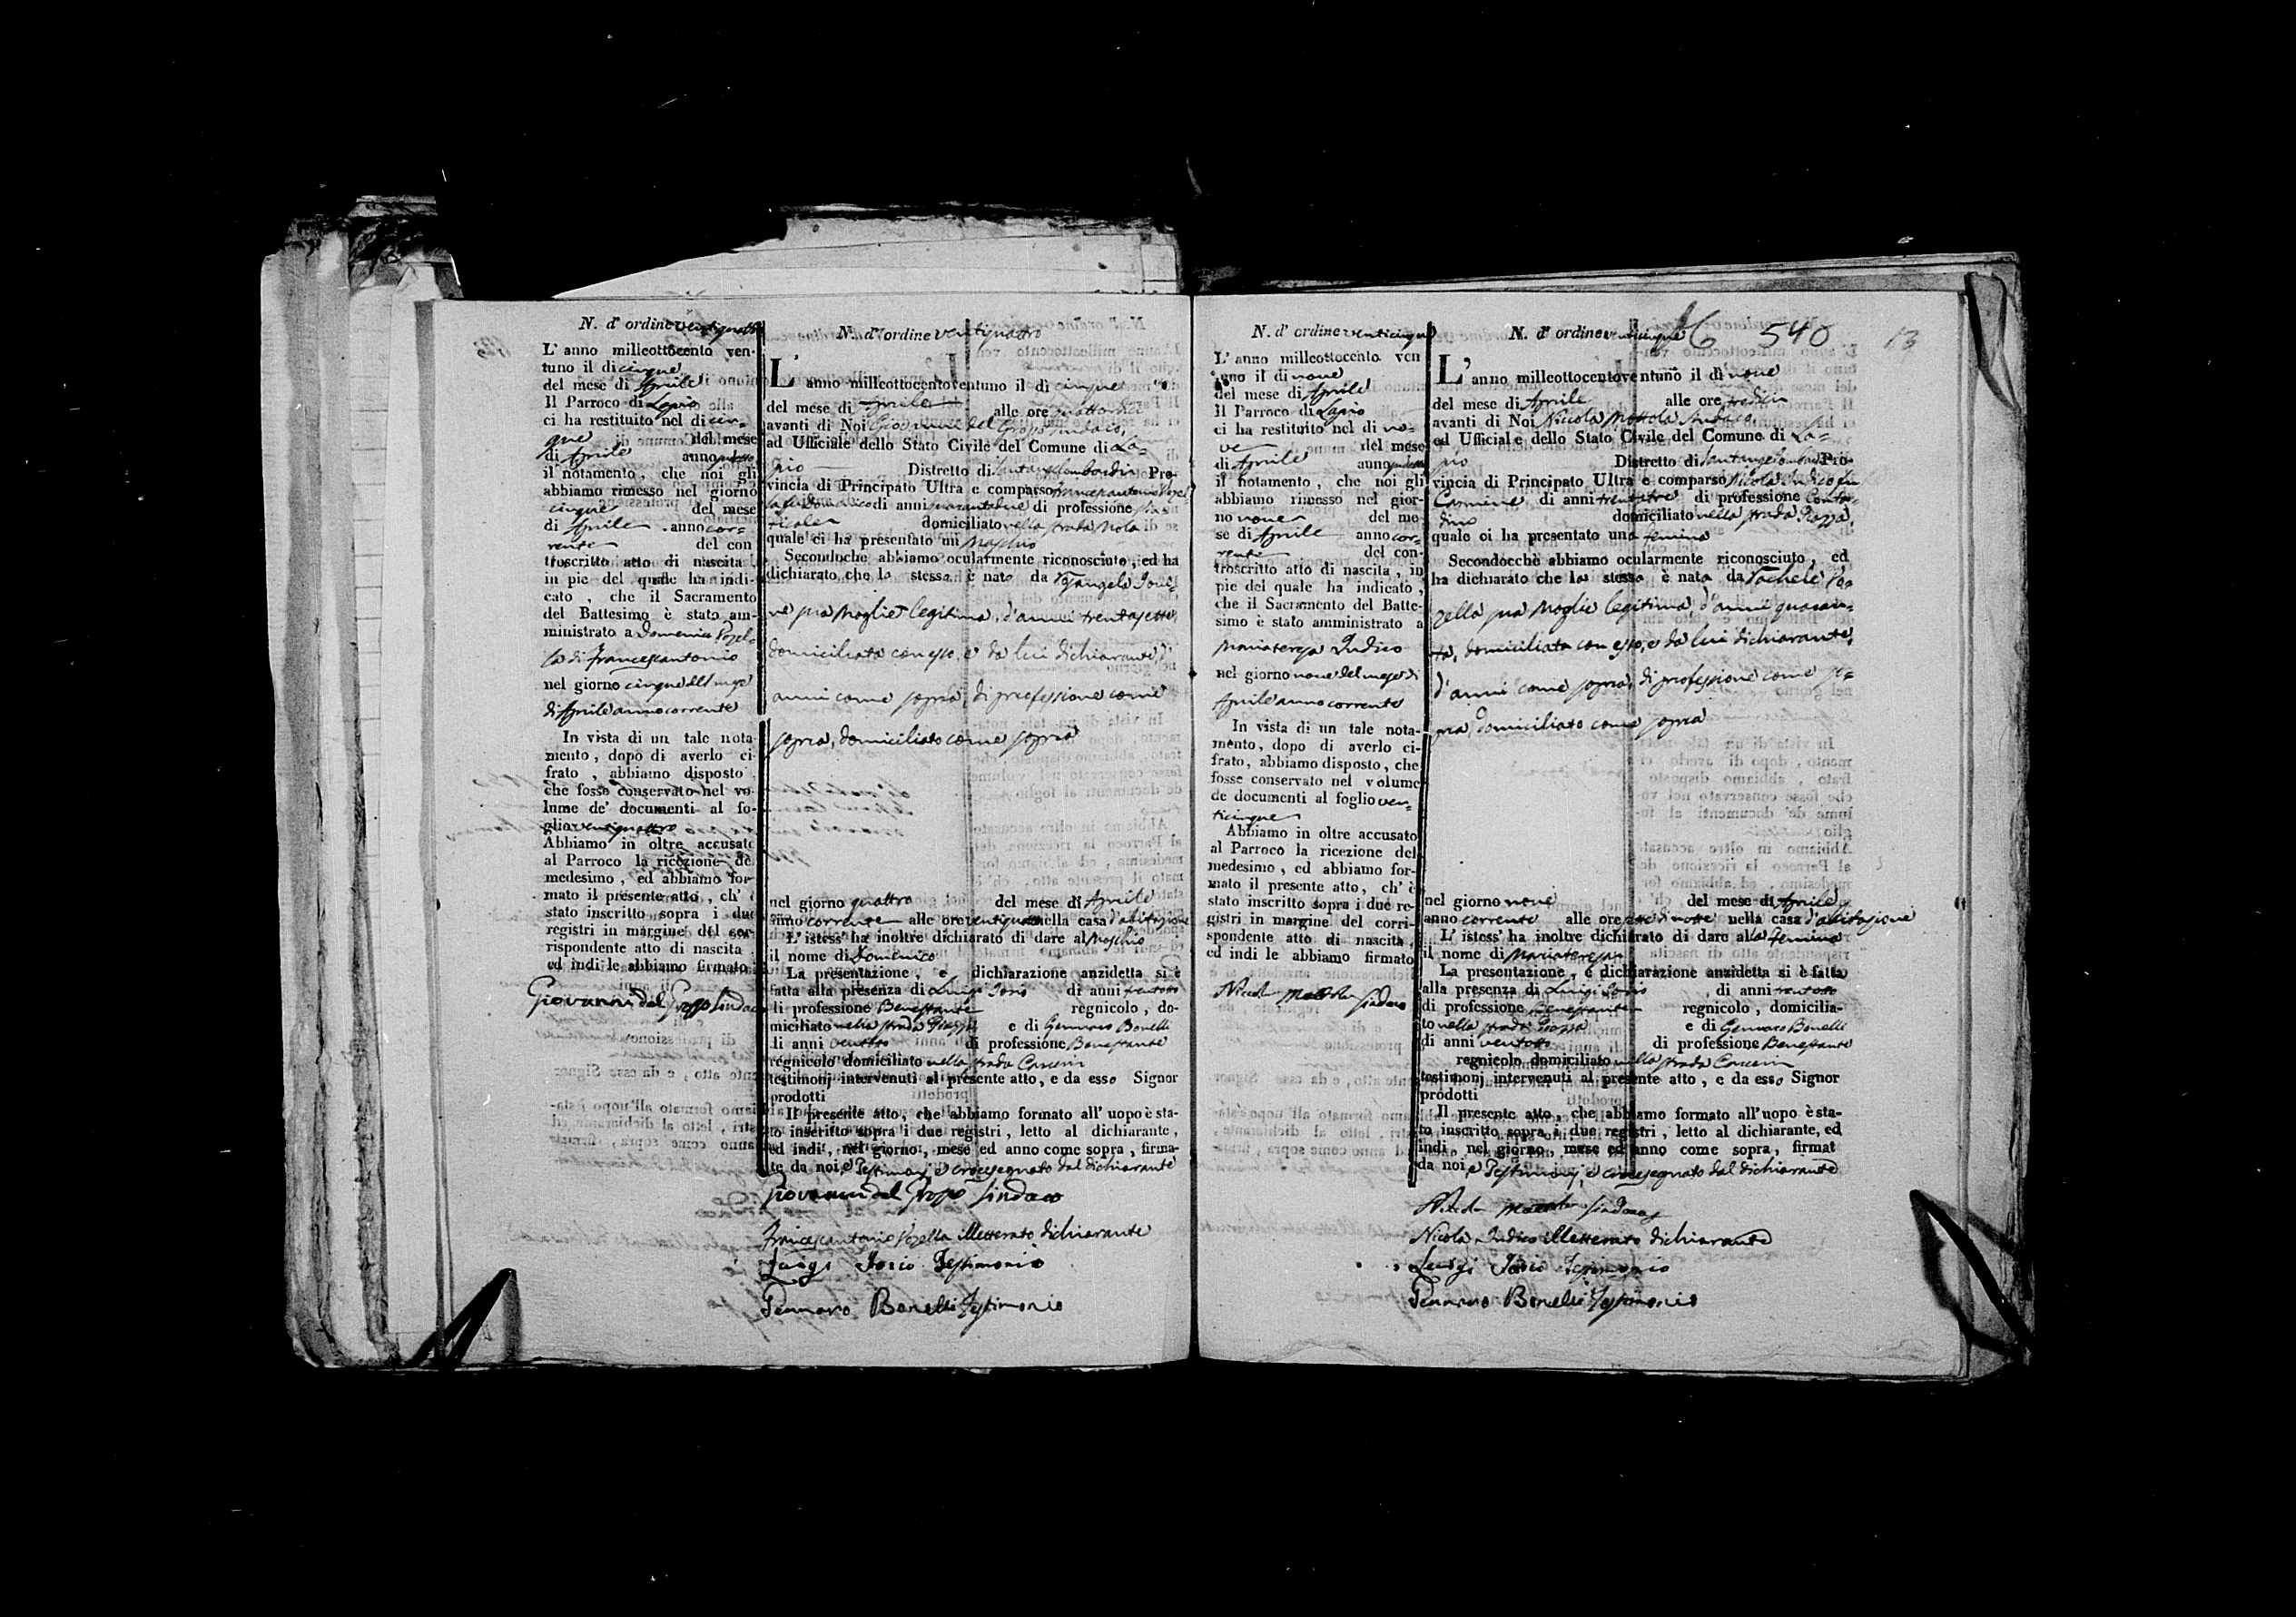 N. d' ordine ventiquattro
L' anno milleottocento ven-
tuno il di cinque
del mese di Aprile
Il Parroco di Lapio
ci ha restituito nel di cin-
que del mese
di Aprile anno
il notamento, che noi gli
abbiamo rimesso nel giorno
cinque del mese
di Aprile anno cor-
rente del con
troscritto atto di nascita,
in pie del quale ha indi-
cato, che il Sacramento
del Battesimo è stato am-
ministrato a Domenico Pozel-
la di Francescantonio
nel giorno cinque del mese
di Aprile anno corrente
In vista di un tale nota-
mento, dopo di averlo ci-
frato, abbiamo disposto
che fosse conservato nel vo-
lume de' documenti al fo-
glio ventiquattro
Abbiamo in oltre accusato
al Parroco la ricezione de
medesimo, ed abbiamo for-
mato il presente atto, ch' è
stato inscritto sopra i due
registri in margine del cor-
rispondente atto di nascita
ed indi le abbiamo firmato
Giovanni del Grosso Sindaco
N. d' ordine ventiquattro
L' anno milleottocentoventuno il dì cinque
del mese di Aprile alle ore quattordici
avanti di Noi Giovanni del Grosso Sindaco,
ad Ufficiale dello Stato Civile del Comune di La-
pio Distretto di Santangelo Lombardi Pro-
vincia di Principato Ultra è comparso Francescantonio Pozel-
la fu Domenico di anni quarantadue di professione
domiciliato nella strada Mola
quale ci ha presentato un Maschio
Secondochè abbiamo ocularmente riconosciuto, ed ha
dichiarato che lo stesso è nato da
sua Moglie legitima, d'anni trentasette
domiciliata con esso, e da lui dichiarante,
anni come sopra, di professione come
sopra, domiciliato come sopra
nel giorno quattro del mese di Aprile
anno corrente alle ore ventiquattro nella casa d'abitazione
L' istess' ha inoltre dichiarato di dare al Maschio
il nome di Domenico
La presentazione, e dichiarazione anzidetta si è
fatta alla presenza di Luigi Iorio di anni trentotto
di professione Benestante regnicolo, do-
miciliato nella strada Piazza e di Gennaro Bonelli
di anni ventotto di professione Benestante
regnicolo domiciliato nella strada Carceri
testimonj intervenuti al presente atto, e da esso Signor
prodotti
Il presente atto, che abbiamo formato all' uopo è sta-
to inscritto sopra i due registri, letto al dichiarante,
ed indi, nel giorno, mese ed anno come sopra, firma-
to da noi, e Testimonj, e crocesegnato dal dichiarante
Giovanni del Grosso Sindaco
Francescantonio Pozella illetterato dichiarante
Luigi Iorio Testimonio
Gennaro Bonelli Testimonio
N. d' ordine venticinque
L' anno milleottocento ven
tuno il di nove
del mese di Aprile
Il Parroco di Lapio
ci ha restituito nel di no-
ve del mese
di Aprile anno
il notamento, che noi gli
abbiamo rimesso nel gior-
no nove del me
se di Aprile anno cor-
rente del con-
troscritto atto di nascita, in
pie del quale ha indicato,
che il Sacramento del Batte-
simo è stato amministrato a
Mariateresa Indico
nel giorno nove del mese di
Aprile anno corrente
In vista di un tale nota-
mento, dopo di averlo ci-
frato, abbiamo disposto, che
fosse conservato nel volume
de documenti al foglio ven-
ticinque
Abbiamo in oltre accusato
al Parroco la ricezione del
medesimo, ed abbiamo for-
mato il presente atto, ch' è
stato inscritto sopra i due re-
gistri in margine del corri-
spondente atto di nascita,
ed indi le abbiamo firmato
Nicola Mottola Sindaco
N. d' ordine venticinque 540 13
L' anno milleottocentoventuno il dì nove
del mese di Aprile alle ore tredici
avanti di Noi Nicola Mottola Sindaco
ed Ufficiale dello Stato Civile del Comune di La-
pio Distretto di Santangelo Lombardi Pro-
vincia di Principato Ultra è comparso Nicola Indico fu
Carmine di anni trentatre di professione Conta-
dino domiciliato nella strada Piazza,
quale ci ha presentato una femina
Secondocchè abbiamo ocularmente riconosciuto, ed
ha dichiarato che la stessa è nata da Rachele Po-
zella sua Moglie legitima, d'anni quaran-
ta, domiciliata con esso, e da lui dichiarante,
d'anni come sopra, di professione come so-
pra, domiciliato come sopra
nel giorno nove del mese di Aprile
anno corrente alle ore sette di notte nella casa d'abitazione
L' istess' ha inoltre dichiarato di dare alla femina
il nome di Mariateresa
La presentazione, e dichiarazione anzidetta si è fatta
alla presenza di Luigi Iorio di anni trentotto
di professione Benestante regnicolo, domicilia-
to nella strada Piazza e di Gennaro Bonelli
di anni ventotto di professione Benestante
regnicolo domiciliato nella strada Carceri
testimonj intervenuti al presente atto, e da esso Signor
prodotti
Il presente atto, che abbiamo formato all' uopo è sta-
to inscritto sopra i due registri, letto al dichiarante, ed
indi, nel giorno, mese ed anno come sopra, firmat
da noi, e Testimonj, e crocesegnato dal dichiarante
Nicola Mottola Sindaco
Nicola Indico illetterato dichiarante
Luigi Iorio Testimonio
Gennaro Bonelli Testimonio